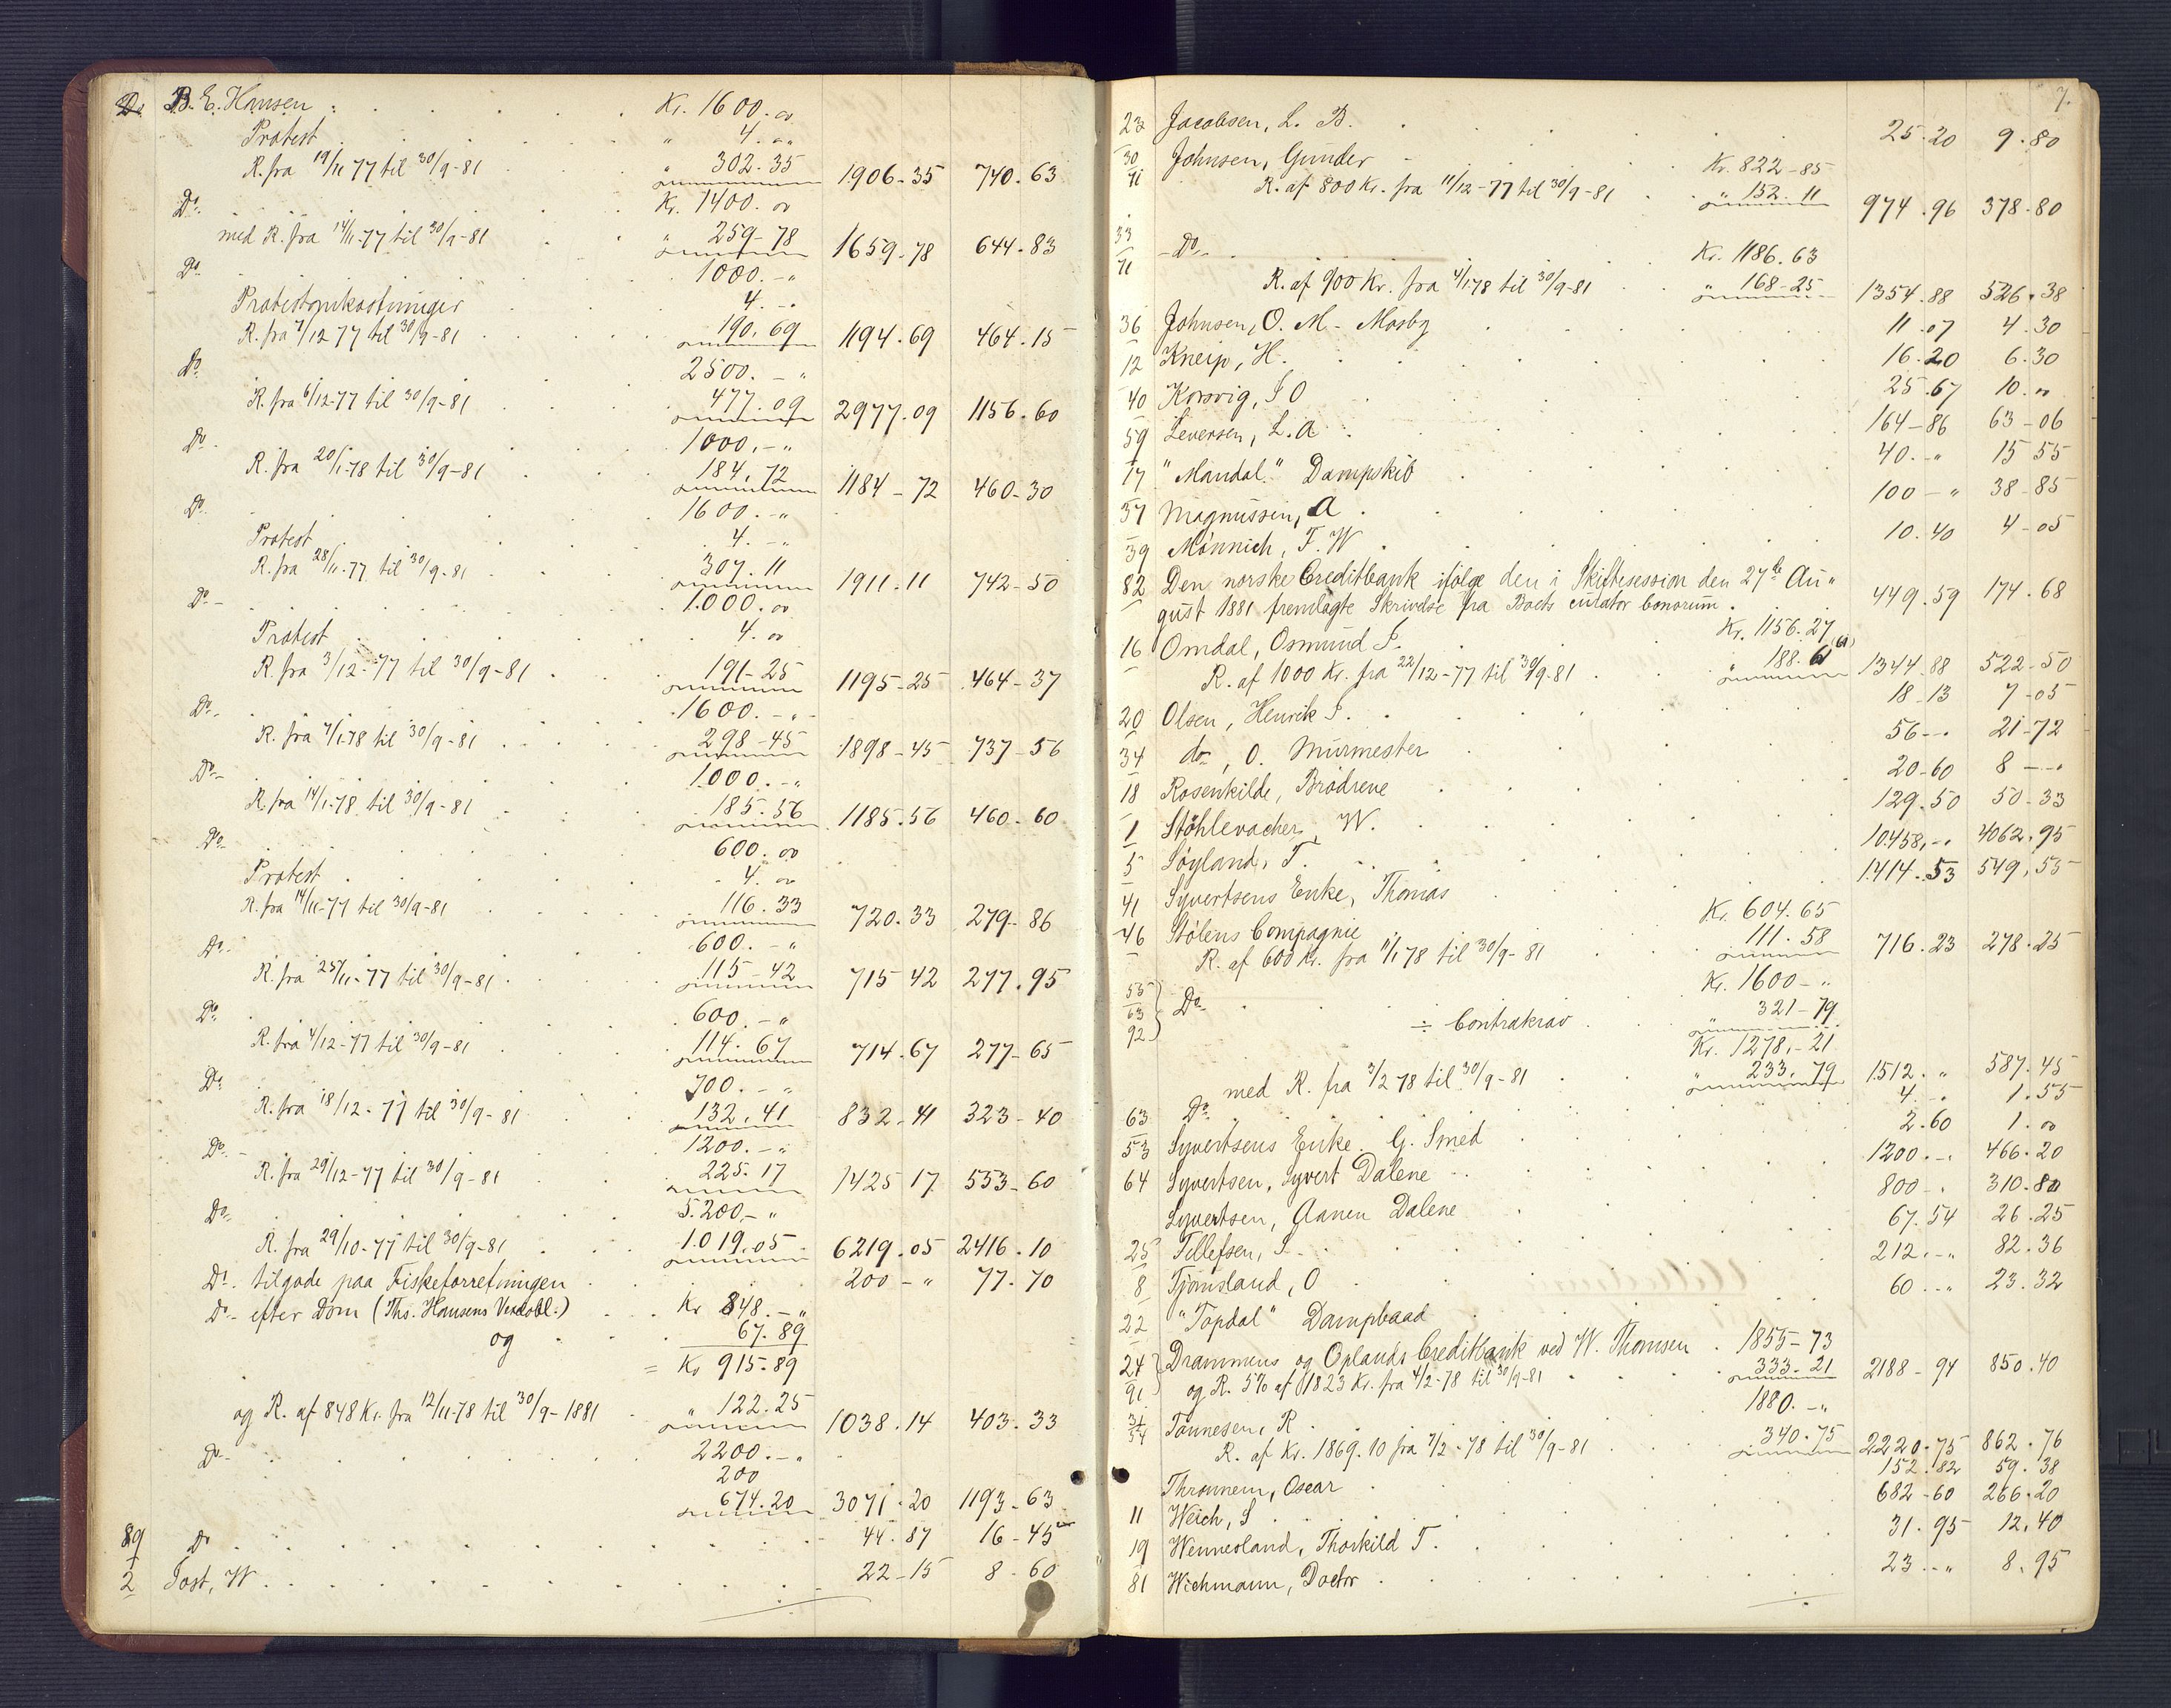 Do. B. E. Hansen . . . Kr. 1600. 00
Protest . . . " 4. "
R. fra 19/11 77 til 30/9-81 . . . " 302.35 1906-35 740.63
Do. . . . Kr. 1400. 00
med R. fra 14/11-77 til 30/9-81 . . . " 259-78 1659.78 644.83
Do. . . . 1000.-"
Protestomkostninger . . . 4.-"
R. fra 7/12 77 til 30/9-81 . . . 190.69 1194.69 464.15
Do. . . . 2500.-"
R. fra 6/12-77 til 30/9-81 . . . 477.09 2977.09 1156.60
Do. . . . 1000.-"
R. fra 20/1-78 til 30/9-81 . . . 184.72 1184-72 460-30
Do. . . . 1600.-"
Protest . . . 4.-"
R. fra 28/11-77 til 30/9-81 . . . 307.11 1911.11 742-50
Do. . . . 1000. 00
Protest . . . 4. 00
R. fra 3/12-77 til 30/9-81 . . . 191-25 1195-25 464-37
Do. . . . 1600.-"
R. fra 7/1-78 til 30/9-81 . . . 298-45 1898-45 737-56
Do. . . . 1000.-"
R. fra 14/1-78 til 30/9-81 . . . 185.56 1185.56 460.60
Do. . . . 600. 00
Protest . . . 4. 00
R. fra 14/11-77 til 30/9-81 . . . 116.33 720.33 279.86
Do. . . . 600.-"
R. fra 25/11-77 til 30/9-81 . . . 115-42 715 42 277.95
Do. . . . 600.-"
R. fra 4/12-77 til 30/9-81 . . . 114.67 714.67 277-65
Do. . . . 700.-"
R. fra 18/12-77 til 30/9-81 . . . 132.41 832.41 323-40
Do. . . . 1200.-"
R. fra 29/12-77 til 30/9-81 . . . 225.17 1425 17 553-60
Do. . . . 5.200.-"
R. fra 29/10-77 til 30/9-81 . . . 1.019.05 6219.05 2416.10
Do. tilgode paa Fiskeforretningen . . . 200-" 77.70
Do. efter Dom (Ths. Hansens Vexelobl.) . . . Kr 848.-"
og . . . 67.89
= Kr 915-89
og R. af 848 Kr. fra 12/11-78 til 30/9-1881 . " 122.25 1038.14 403.33
Do. . . . 2200.-"
200
674.20 3071.20 1193-63
89 Do . . . 44.87 16-45
2 Jost, W. . . . 22-15 8-60
7.
23 Jacobsen, L. B. . . . 25.20 9.80
30/91 Johnsen, Gunder . . . Kr. 822-85
R. af 800 Kr. fra 11/12-77 til 30/9-81 . . " 152.11 974.96 378.80
33/71 -Do- . . . Kr. 1186.63
R. af 900 Kr. fra 4/1 78 til 30/9-81 . . " 168-25 1354.88 526.38
36 Johnsen, O. M. Mosby . . . 11.07 4.30
12 Kneip, H. . . . 16.20 6.30
40 Korsvig, S O . . . 25.67 10. "
59 Leversen, L. A. . . . 164-86 63-06
17 "Mandal" Dampskib . . . 40.-" 15 55
37 Magnussen, A . . . 100-" 38-85
39 Mönnich, F. W . . . 10.40 4-05
82 Den norske Creditbank ifölge den i Skiftesession den 27de Au"
gust 1881 fremlagte Skrivelse fra Boets curator bonorum . 449.59 174.68
16 Omdal, Osmund S. . . . Kr. 1156.27
R. af 1000 Kr. fra 22/12-77 til 30/9-81 . . " 188.61 (61) 1344.88 522-50
20 Olsen, Henrik S. . . . 18-13 7-05
34 do, O. Murmester . . . 56-" 21-72
18 Rosenkilde, Brödrene . . . 20-60 8-"
1 Stöhlevacher, W. . . . 129.50 50-33
5 Söyland, T. . . . 10.458,-" 4062.95
41 Syvertsens Enke, Thomas . . . 1414.53 549,55
46 Stölens Compagnie . . . Kr. 604.65
R. af 600 Kr. fra 11/1 78 til 30/9-81 . . 111.58 716.23 278.25
55/63/92} Do. . . . Kr. 1600-"
÷ Contrakrav . . " 321-79
Kr. 1278.-21
med R. fra 3/2 78 til 30/9-81 . . " 233.79 1512." 587.45
63 Do. . . . 4.-" 1.55
53 Syvertsens Enke. G. Smed . . . 2.60 1. 00
64 Syvertsen, Syvert Dalene . . . 1200.-" 466.20
Syvertsen, Aanen Dalene . . . 800-" 310.80
25 Tellefsen, S. . . . 67.54 26.25
8 Tjomsland, O . . . 212.-" 82.36
22 "Topdal" Dampbaad . . . 60-" 23.32
24/91} Drammens og Oplands Creditbank ved W. Thomsen . 1855-73
og R. 5% af 1823 Kr. fra 4/2-78 til 30/9-81 . . . 333-21 2188-94 850.40
31/54 Tönnesen, R . . . 1880.-"
R. af Kr. 1869.10 fra 7/2-78 til 30/9-81 . . 340.75 2220.75 862.76
Thronnem, Oscar . . . 152.82 59.38
11 Weich, S . . . 682-60 266.20
19 Wennesland, Thorkild T. . . . 31.95 12.40
81 Wichmann, Doctor . . . 23.-" 8.95